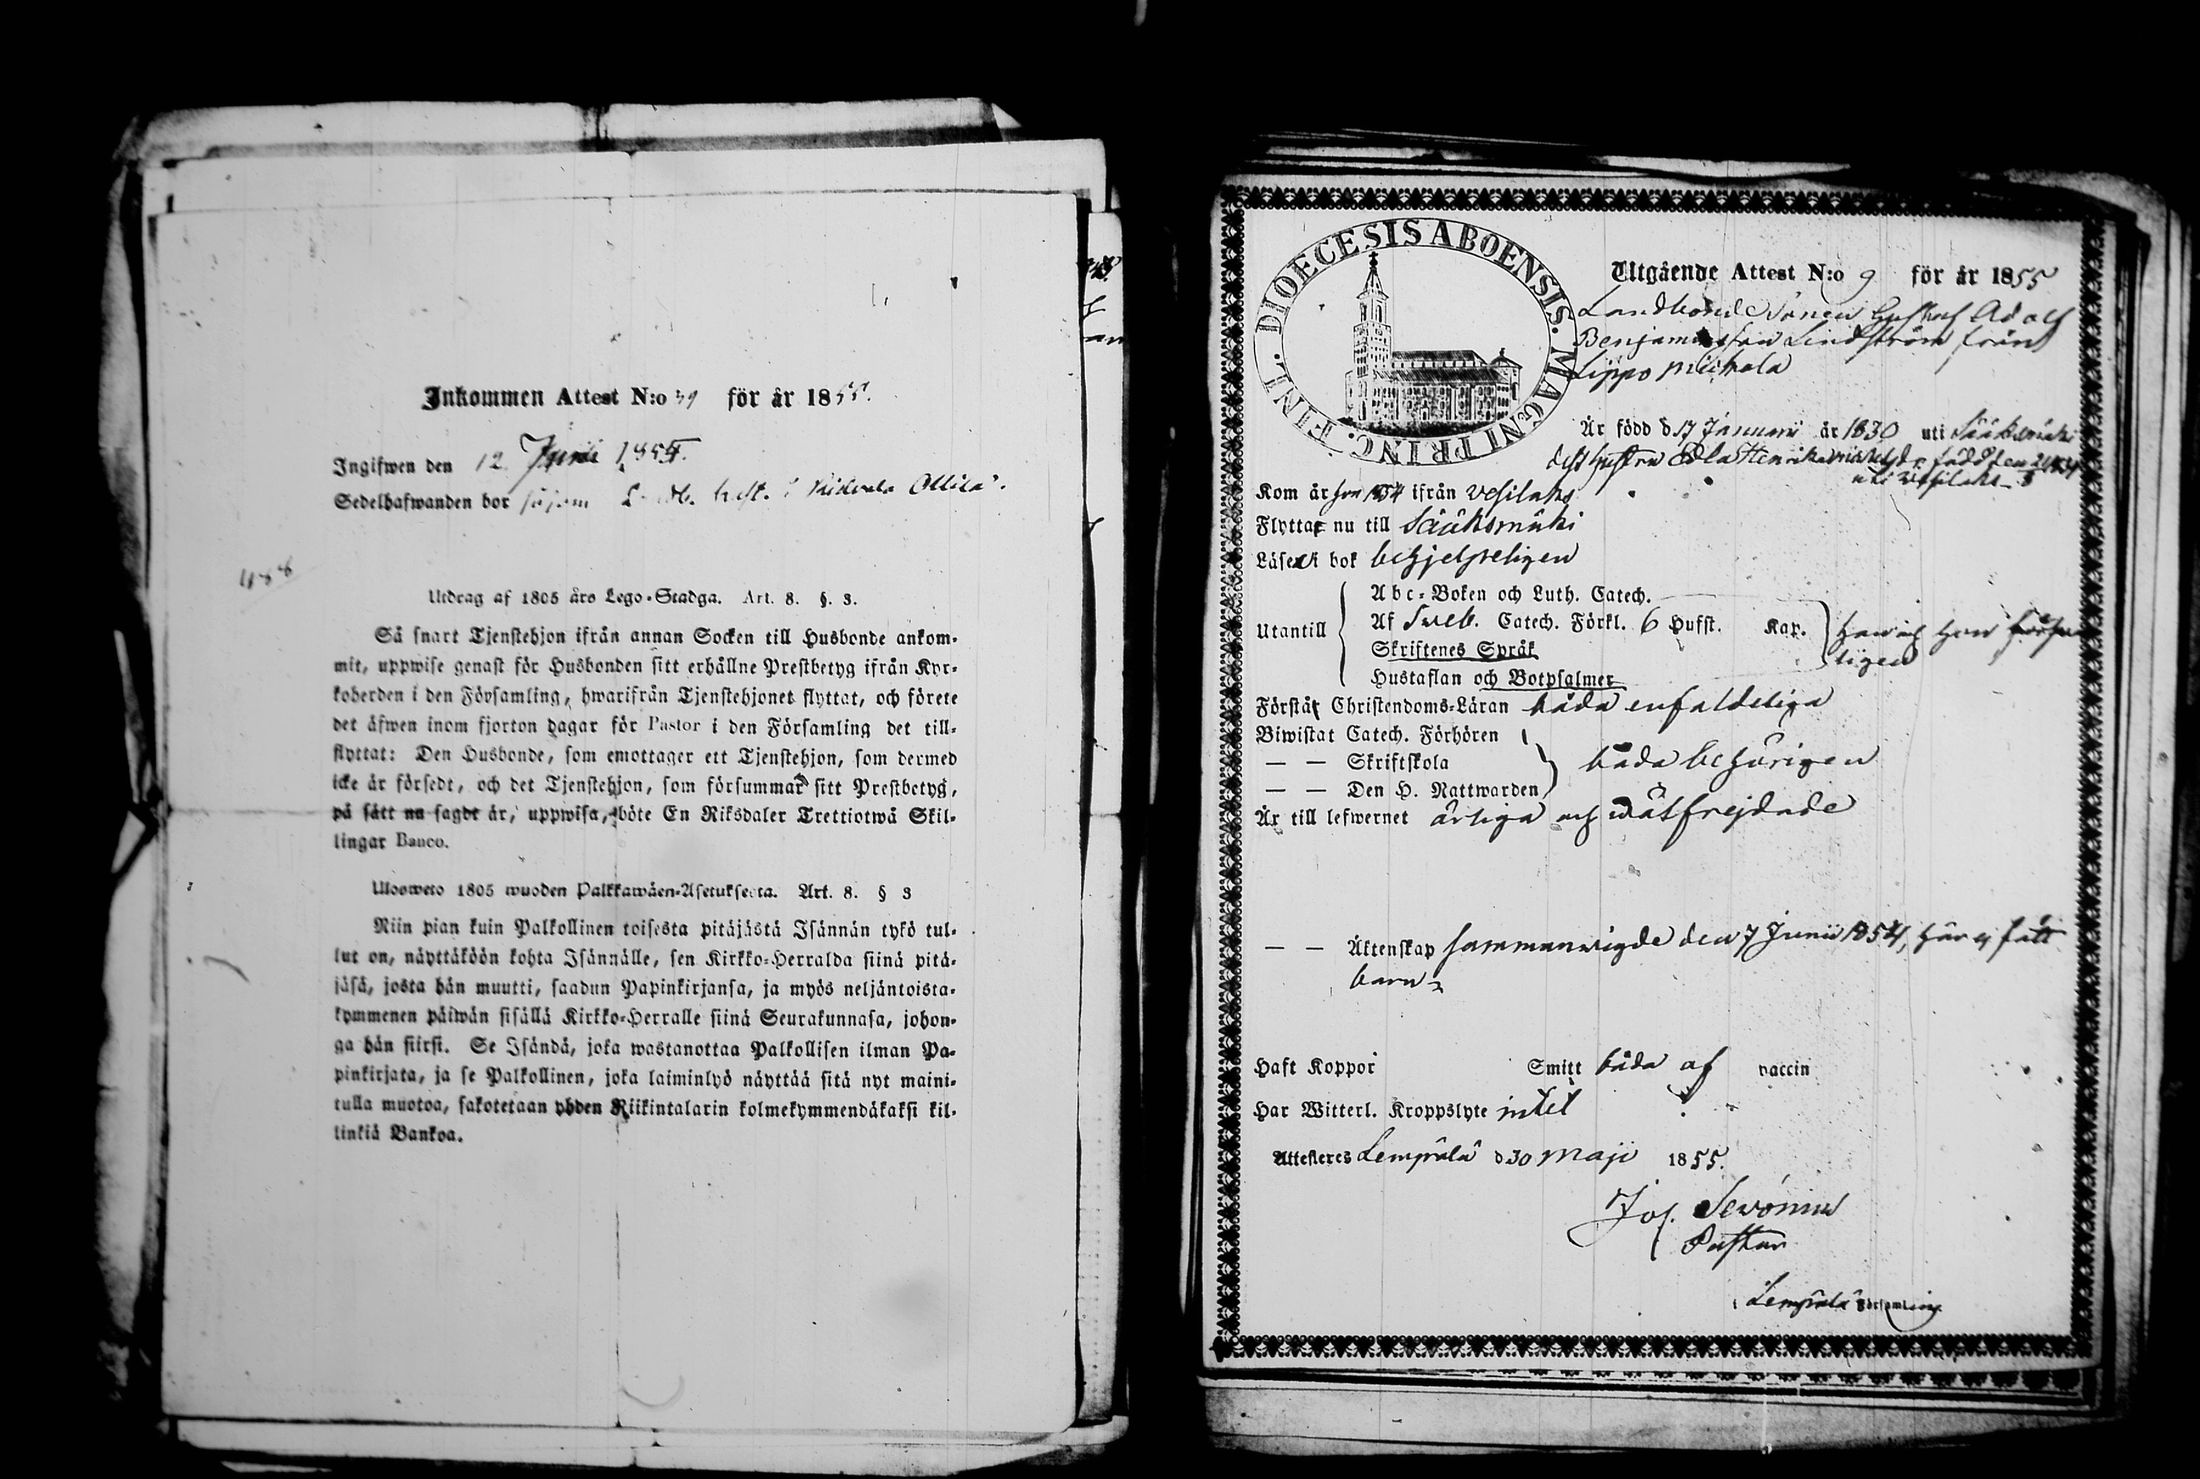 Inkommen Attest N:o 39 för år 1855.
Ingifwen den 12 Junii 1855.
Sedelhafwanden bor såsom Ollila.
488
Utdrag af 1805 års Lego-Stadga. Art. 8. §. 3.
Så snart Tjenstehjon ifrån annan Socken till Husbonde ankom-
mit, uppwise genast för Husbonden sitt erhållne Prestbetyg ifrån Kyr-
koherden i den Församling, hwarifrån Tjenstehjonet flyttat, och förete
det äfwen inom fjorton dagar för Pastor i den Församling det till-
flyttat: Den Husbonde, som emottager ett Tjenstehjon, som dermed
icke är försedt, och det Tjenstehjon, som försummar sitt Prestbetyg,
på sätt nu sagdt är, uppwisa, böte En Riksdaler Trettiotwå Skil-
lingar Banco.
Ulosweto 1805 wuoden Palkkawäen-Asetuksesta. Art. 8. § 3
Niin pian kuin Palkollinen toisesta pitäjästä Isännän tykö tul-
lut on, näyttäköön kohta Isännälle, sen Kirkko-Herralda siinä pitä-
jäsä, josta hän muutti, saadun Papinkirjansa, ja myös neljäntoista-
kymmenen päiwän sisällä Kirkko-Herralle siinä Seurakunnasa, johon-
ga hän siirsi. Se Isändä, joka wastanottaa Palkollisen ilman Pa-
pinkirjata, ja se Palkollinen, joka laiminlyö näyttää sitä nyt maini-
tulla muotoa, sakotetaan yhden Riikintalarin kolmekymmendäkaksi kil-
linkiä Bankoa.
DIOECESIS ABOENSIS. MAGNI PRINC. FINL.
Utgående Attest N:o 9 för år 1855
Landbonde Sonen Gustaf Adolf
Benjaminsson Lindström från
Lippo Mickola
Är född d 17 Januarii år 1830 uti Sääksmäki
dess hustru Edla Henriksdr född den
uti Vesilaks
Kom är hon 1854 ifrån Vesilaks
Flyttar nu till Sääksmäki
Läser i bok behjelpeligen
Utantill
Abc-Boken och Luth. Catech.
Af Sveb. Catech. Förkl. 6 Hufst. Kap.
Skriftenes Språk
Hustaflan och Botpsalmer
han och hon
ligen
Förstår Christendoms-Läran båda enfaldeliga
Biwistat Catech. Förhören
— — Skriftskola
båda behörigen
— — Den H. Nattwarden
Är till lefwernet ärliga och wälfrejdade
— — Äktenskap sammanwigde den 7 Junii 1854, har ej fått
barn
Haft Koppor Smitt båda af vaccin
Har Witterl. Kroppslyte intet
Attesteres Lempälä d 30 Maji 1855.
Jos. Sewónius
Pastor
i Lempälä Församling